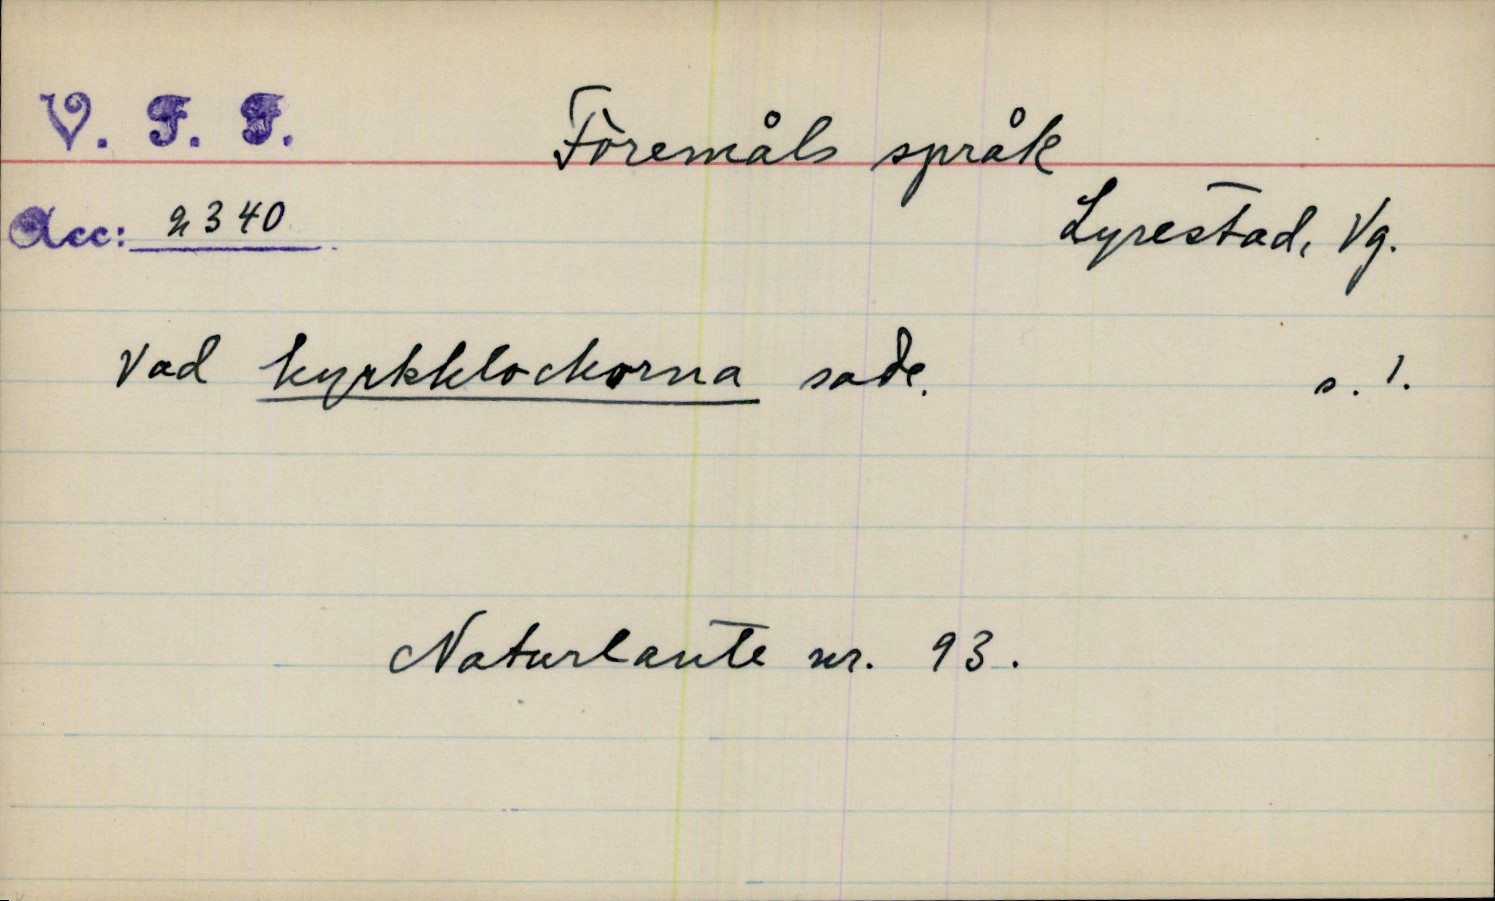 V. F. F.
Föremåls språk
Acc: 2340
Lyrestad, Vg.
Vad kyrkklockorna sade. s. 1.
Naturlaute nr. 93.